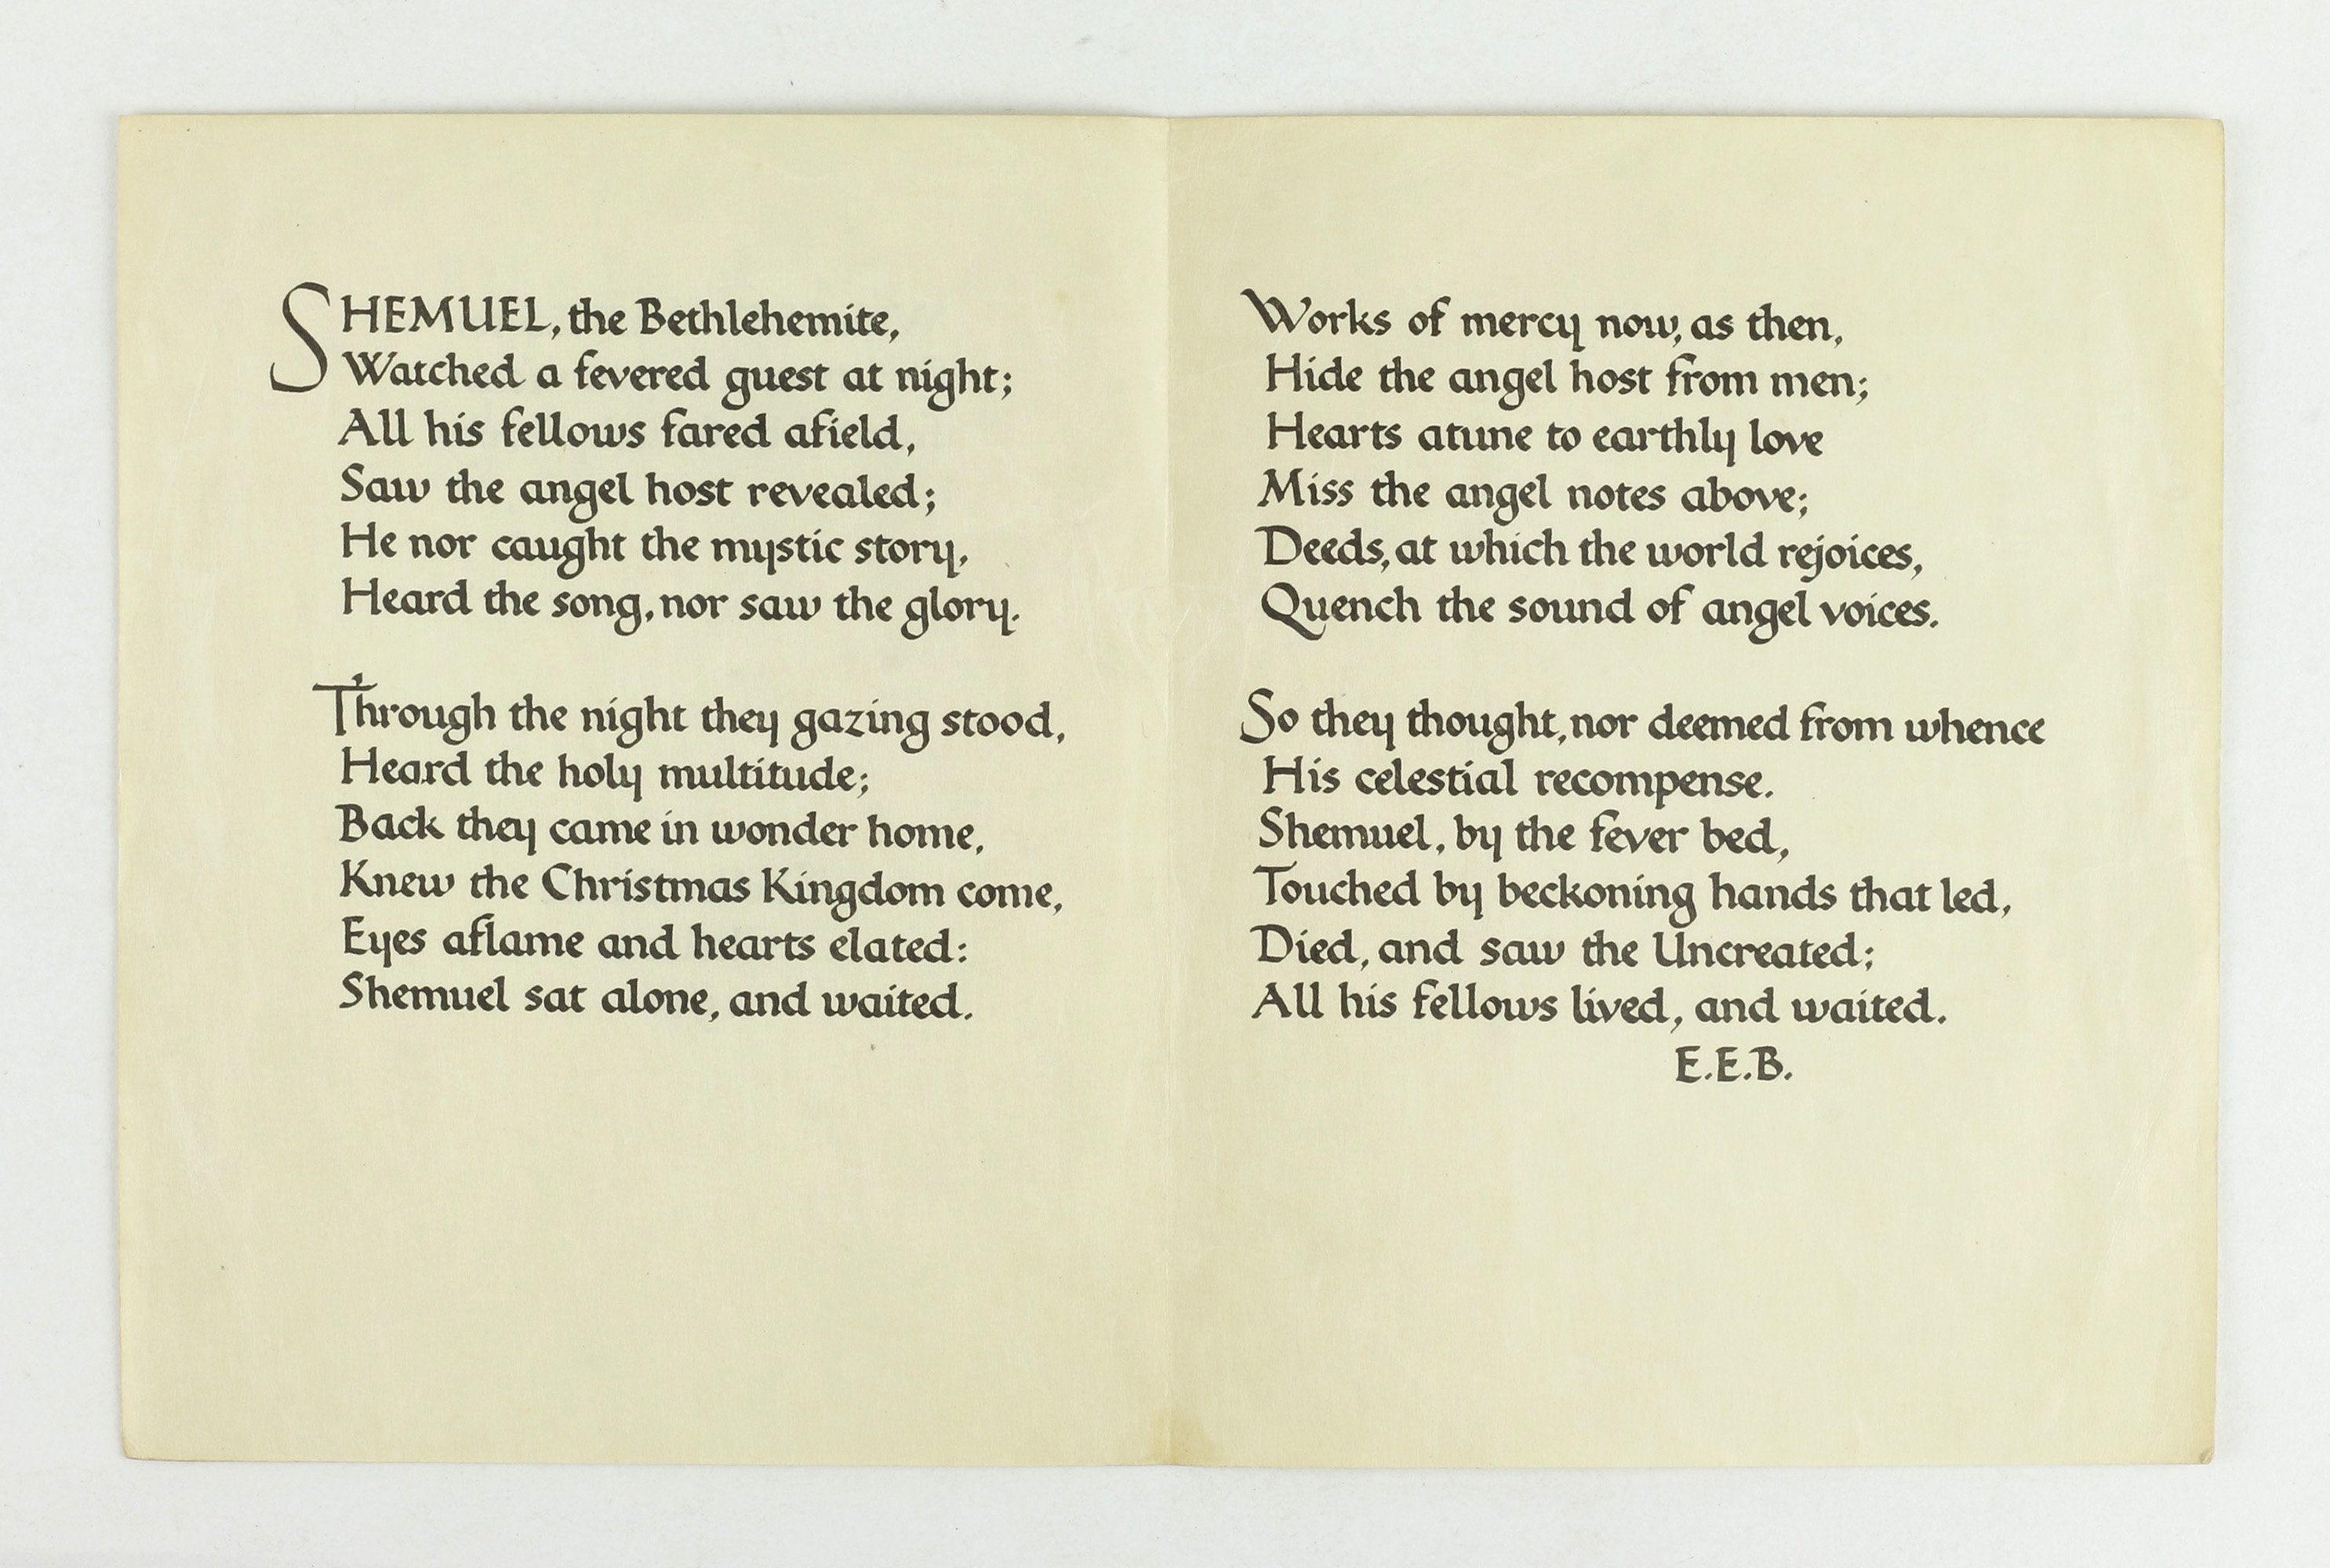 SHEMUEL, the Bethlehemite,
Watched a fevered guest at night;
All his fellows fared afield,
Saw the angel host revealed;
He nor caught the mystic story,
Heard the song, nor saw the glory.
Through the night they gazing stood,
Heard the holy multitude;
Back they came in wonder home,
Knew the Christmas Kingdom come,
Eyes aflame and hearts elated:
Shemuel sat alone, and waited.
Works of mercy now, as then,
Hide the angel host from men;
Hearts atune to earthly love
Miss the angel notes above;
Deeds, at which the world rejoices,
Quench the sound of angel voices.
So they thought, nor deemed from whence
His celestial recompense.
Shemuel, by the fever bed,
Touched by beckoning hands that led,
Died, and saw the Uncreated;
All his fellows lived, and waited.
E.E.B.